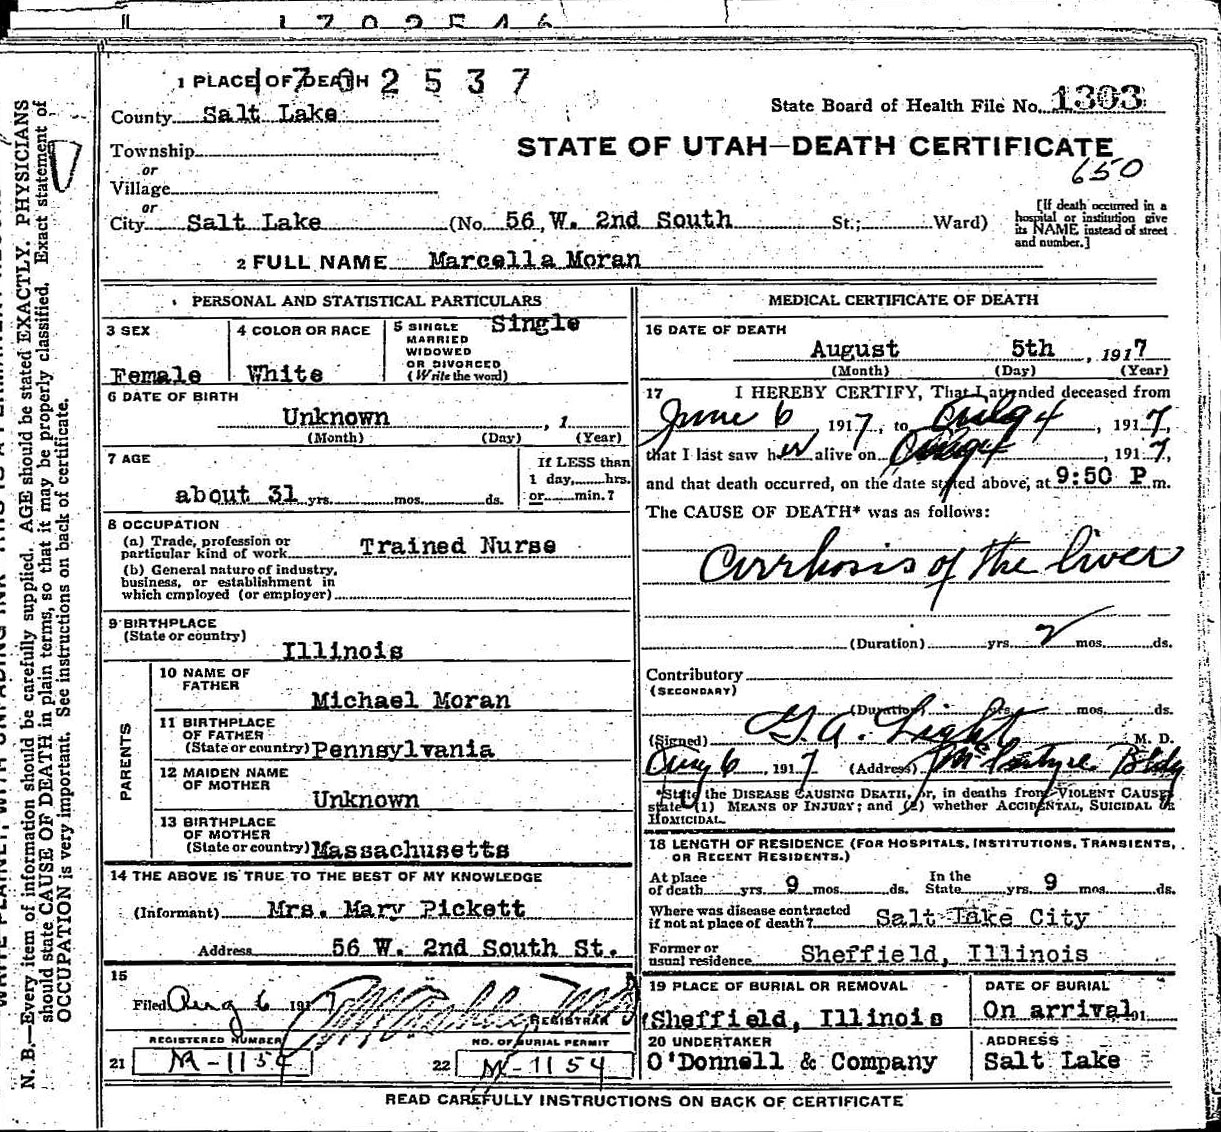 1 7 0 2 5 4 6
1 PLACE OF DEATH 1 7 0 2 5 3 7
State Board of Health File No. 1303
County Salt Lake
STATE OF UTAH—DEATH CERTIFICATE
Township
650
or
Village
or
City Salt Lake (No. 56 W. 2nd South St.; Ward)
[If death occurred in a
hospital or institution give
its NAME instead of street
and number.]
2 FULL NAME Marcella Moran
PERSONAL AND STATISTICAL PARTICULARS
3 SEX
Female
4 COLOR OR RACE
White
5 SINGLE
MARRIED
WIDOWED
OR DIVORCED
(Write the word)
Single
6 DATE OF BIRTH
Unknown , 1
(Month) (Day) (Year)
7 AGE
about 31 yrs. mos. ds.
If LESS than
1 day, hrs.
or min.?
8 OCCUPATION
(a) Trade, profession or
particular kind of work Trained Nurse
(b) General nature of industry,
business, or establishment in
which employed (or employer)
9 BIRTHPLACE
(State or country)
Illinois
PARENTS
10 NAME OF
FATHER
Michael Moran
11 BIRTHPLACE
OF FATHER
(State or country) Pennsylvania
12 MAIDEN NAME
OF MOTHER
Unknown
13 BIRTHPLACE
OF MOTHER
(State or country) Massachusetts
14 THE ABOVE IS TRUE TO THE BEST OF MY KNOWLEDGE
(Informant) Mrs. Mary Pickett
Address 56 W. 2nd South St.
15
Filed Aug 6 1917
REGISTRAR
REGISTERED NUMBER
21 M-1154
NO. OF BURIAL PERMIT
22 M-1154
MEDICAL CERTIFICATE OF DEATH
16 DATE OF DEATH
August 5th , 1917
(Month) (Day) (Year)
17 I HEREBY CERTIFY, That I attended deceased from
June 6 , 1917, to Aug 4 , 1917,
that I last saw her alive on Aug 4 , 1917,
and that death occurred, on the date stated above, at 9:50 P m.
The CAUSE OF DEATH* was as follows:
Cirrhosis of the liver
(Duration) yrs. 2 mos. ds.
Contributory
(SECONDARY)
(Duration) yrs. mos. ds.
(Signed) G. A. Light M. D.
Aug 6 , 1917 (Address) Bldg
*State the DISEASE CAUSING DEATH, or, in deaths from VIOLENT CAUSES
state (1) MEANS OF INJURY; and (2) whether ACCIDENTAL, SUICIDAL or
HOMICIDAL.
18 LENGTH OF RESIDENCE (FOR HOSPITALS, INSTITUTIONS, TRANSIENTS,
OR RECENT RESIDENTS.)
At place
of death yrs. 9 mos. ds.
In the
State yrs. 9 mos. ds.
Where was disease contracted
if not at place of death? Salt Lake City
Former or
usual residence Sheffield, Illinois
19 PLACE OF BURIAL OR REMOVAL
Sheffield, Illinois
DATE OF BURIAL
On arrival 191
20 UNDERTAKER
O'Donnell & Company
ADDRESS
Salt Lake
READ CAREFULLY INSTRUCTIONS ON BACK OF CERTIFICATE
N. B.—Every item of information should be carefully supplied. AGE should be stated EXACTLY. PHYSICIANS
should state CAUSE OF DEATH in plain terms, so that it may be properly classified. Exact statement of
OCCUPATION is very important. See instructions on back of certificate.